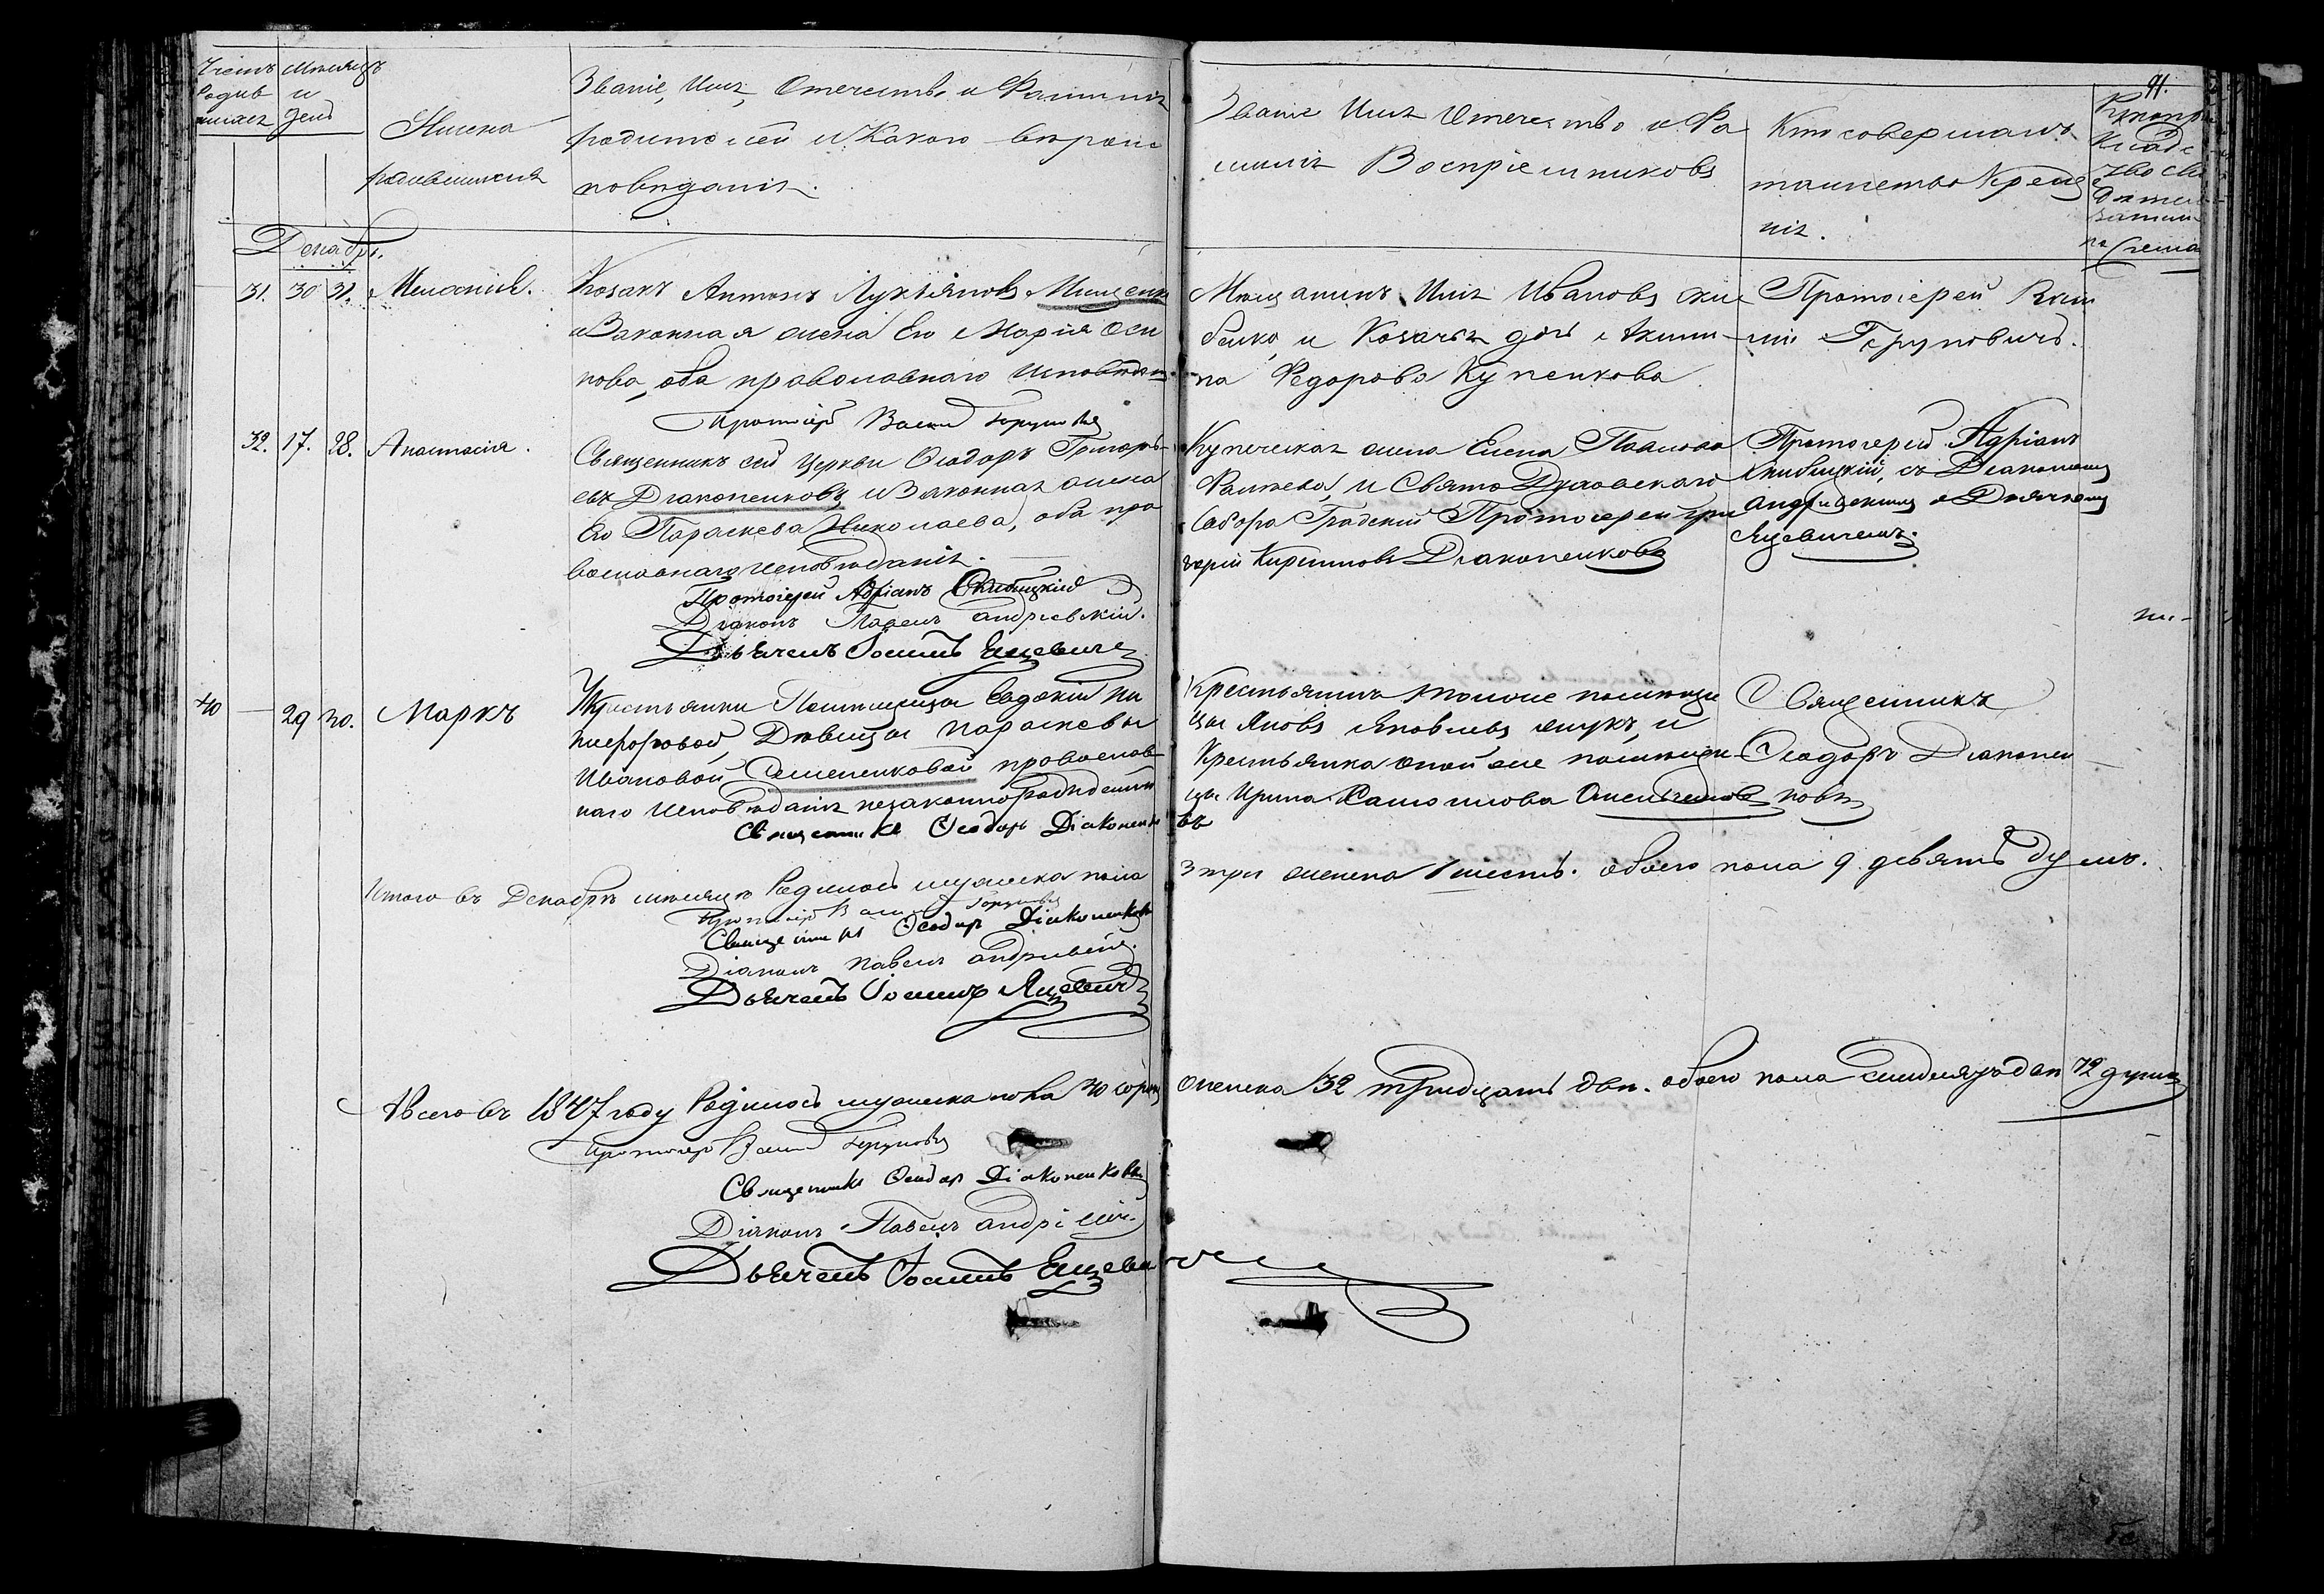 91.
Счетъ Родив шихся
Мѣсяцъ и день
Имена родившихся
Званіе, Имя, Отечество и Фамилія
родителей и Какого вѣроис
повѣданія.
Званіе Имя Отечество и Фа
милія Воспріемниковъ
Кто совершалъ
таинство Креще
нія.
Декабрь.
31. 30 31. Меланія.
Козакъ Антонъ Лукіяновъ Мищенко
и Законная жена Его Марія Оси
пова, оба православнаго Исповѣдан.
Протоіер Васил Герунович
Мѣщанинъ Илія Ивановъ
и Козачья дочь Акили
на Федорова Купенкова
Протоіерей Васи
лій Геруновичъ.
32. 17. 28. Анастасія.
Священникъ сей Церкви Ѳеодоръ Григорь
евъ Діаконенковъ, и Законная жена
Его Параскева Николаева, оба пра
вославнаго Исповѣданія.
Протоіерей Адріанъ
Діаконъ Павелъ Андріевскій.
Дьячекъ Іосифъ Яцевичъ
Купеческая жена Елена Павлова
и Свято Духовскаго
Собора Градскій Протоіерей Гри
горій Кириловъ Діаконенковъ
Протоіерей Адріанъ
съ Діакономъ
Андріевскимъ и Дьячкомъ
Яцевичемъ.
40 29 30. Маркъ
У Крестьянки Помѣщицы Евдокіи Ни
кифоровой, Дѣвицы Параскевы
Ивановой Семененковой православ
наго Исповѣданія незаконнорожденны
Священникъ Ѳеодоръ Діаконенковъ
Крестьянинъ тоиже помѣщи
цы Яковъ Яковлевъ, и
Крестьянка оной же помѣщи
цы Ирина
Священникъ
Ѳеодоръ Діаконен
ковъ
Итого въ Декабрѣ мѣсяцѣ Родилось мужеска пола 3 три женска 6 шесть. обоего пола 9 девять душъ.
Протоіер Васил Герунович
Священникъ Ѳеодоръ Діаконенковъ
Діаконъ Павелъ Андріевскій.
Дьячекъ Іосифъ Яцевичъ
А всего въ 1847 году Родилось мужеска пола 40 сорокъ женска 32 тридцать два. обоего пола семдесятъ два 72 души
Протоіер Васил Герунович
Священникъ Ѳеодоръ Діаконенковъ
Діаконъ Павелъ Андріевскій
Дьячекъ Іосифъ Яцевичъ